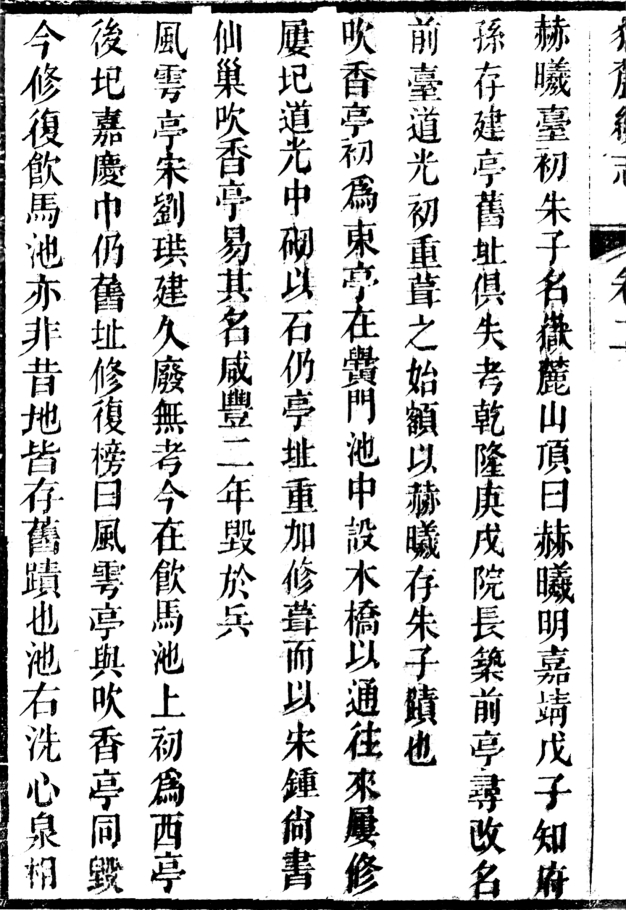 嶽麓續志
卷二
赫曦臺初朱子名嶽麓山頂曰赫曦明嘉靖戊子知府
孫存建亭舊址俱失考乾隆庚戌院長築前亭尋改名
前臺道光初重葺之始額以赫曦存朱子蹟也
吹香亭初爲東亭在黌門池中設木橋以通往來屢修
屢圮道光中砌以石仍亭址重加修葺而以宋鍾尚書
仙巢吹香亭易其名咸豐二年毀於兵
風雩亭宋劉珙建久廢無考今在飮馬池上初爲西亭
後圮嘉慶中仍舊址修復榜曰風雩亭與吹香亭同毀
今修復飮馬池亦非昔地皆存舊蹟也池右洗心泉相